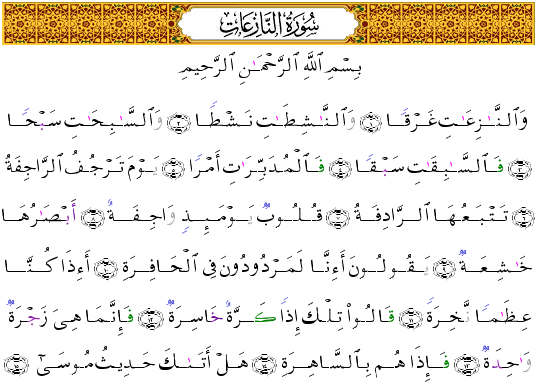 سُورَةُ النَّازِعَاتِ
بِسْمِ ٱللَّهِ ٱلرَّحْمَٰنِ ٱلرَّحِيمِ
وَٱلنَّٰزِعَٰتِ غَرْقًا ۝١ وَٱلنَّٰشِطَٰتِ نَشْطًا ۝٢ وَٱلسَّٰبِحَٰتِ سَبْحًا
۝٣ فَٱلسَّٰبِقَٰتِ سَبْقًا ۝٤ فَٱلْمُدَبِّرَٰتِ أَمْرًا ۝٥ يَوْمَ تَرْجُفُ ٱلرَّاجِفَةُ
۝٦ تَتْبَعُهَا ٱلرَّادِفَةُ ۝٧ قُلُوبٌ يَوْمَئِذٍ وَاجِفَةٌ ۝٨ أَبْصَٰرُهَا
خَٰشِعَةٌ ۝٩ يَقُولُونَ أَءِنَّا لَمَرْدُودُونَ فِى ٱلْحَافِرَةِ ۝١٠ أَءِذَا كُنَّا
عِظَٰمًا نَّخِرَةً ۝١١ قَالُوا۟ تِلْكَ إِذًا كَرَّةٌ خَاسِرَةٌ ۝١٢ فَإِنَّمَا هِىَ زَجْرَةٌ
وَٰحِدَةٌ ۝١٣ فَإِذَا هُم بِٱلسَّاهِرَةِ ۝١٤ هَلْ أَتَىٰكَ حَدِيثُ مُوسَىٰٓ ۝١٥